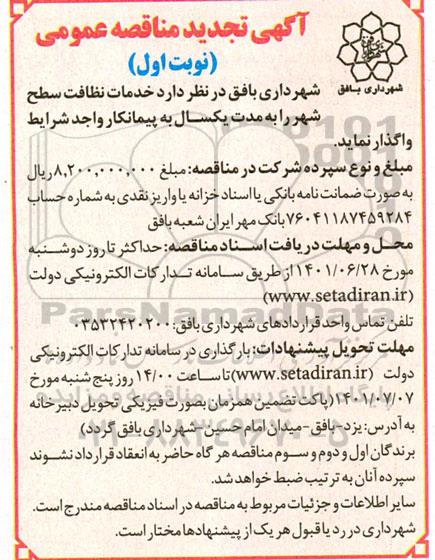 آگهی تجدید مناقصه عمومی
(نوبت اول)
شهرداری بافق
شهرداری بافق در نظر دارد خدمات نظافت سطح
شهر را به مدت یکسال به پیمانکار واجد شرایط
واگذار نماید.
مبلغ و نوع سپرده شرکت در مناقصه: مبلغ ۸,۲۰۰,۰۰۰,۰۰۰ ریال
به صورت ضمانت نامه بانکی یا اسناد خزانه یا واریز نقدی به شماره حساب
۷۶۰۴۱۱۸۷۴۵۹۲۸۴ بانک مهر ایران شعبه بافق
محل و مهلت دریافت اسناد مناقصه: حداکثر تا روز دوشنبه
مورخ ۱۴۰۱/۰۶/۲۸ از طریق سامانه تدارکات الکترونیکی دولت
(www.setadiran.ir)
تلفن تماس واحد قراردادهای شهرداری بافق: ۰۳۵۳۲۴۲۰۲۰۰
مهلت تحویل پیشنهادات: بارگذاری در سامانه تدارکات الکترونیکی
دولت (www.setadiran.ir) تا ساعت ۱۴/۰۰ روز پنج شنبه مورخ
۱۴۰۱/۰۷/۰۷ (پاکت تضمین همزمان بصورت فیزیکی تحویل دبیرخانه
به آدرس: یزد-بافق-میدان امام حسین-شهرداری بافق گردد)
برندگان اول و دوم و سوم مناقصه هر گاه حاضر به انعقاد قرارداد نشوند
سپرده آنان به ترتیب ضبط خواهد شد.
سایر اطلاعات و جزئیات مربوط به مناقصه در اسناد مناقصه مندرج است.
شهرداری در رد یا قبول هر یک از پیشنهادها مختار است.
ParsNamadData